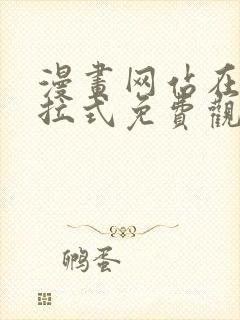 漫畫网佔在
拉式免費觀
鸭蛋